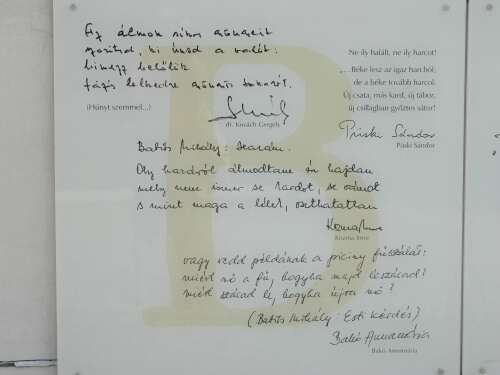 Az álmok síkos gyöngyeit
szorítsd, ki únod a valót:
hímezz belőlük
fázó lelkedre gyöngyös takarót.
(Húnyt szemmel...)
dr. Kovách Gergely
Ne ily halált, ne ily harcot!
„...Béke lesz az igaz harcból;
de a béke tovább harcol.
Új csata, más kard, új tábor,
új csillagban győztes sátor!
Püski Sándor
Püski Sándor
Babits Mihály: Hazám.
Oly hazáról álmodtam én hajdan
mely nem ismer se kardot, se vámot
s mint maga a lélek, oszthatatlan
Kozma Imre
Kozma Imre
vagy vedd példának a piciny fűszálat:
miért nő a fű, hogyha majd leszárad?
miért szárad le, hogyha újra nő?
(Babits Mihály: Esti kérdés)
Bakó Annamária
Bakó Annamária
B